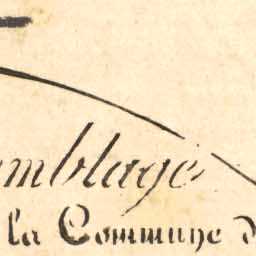 emblage
la Commune d